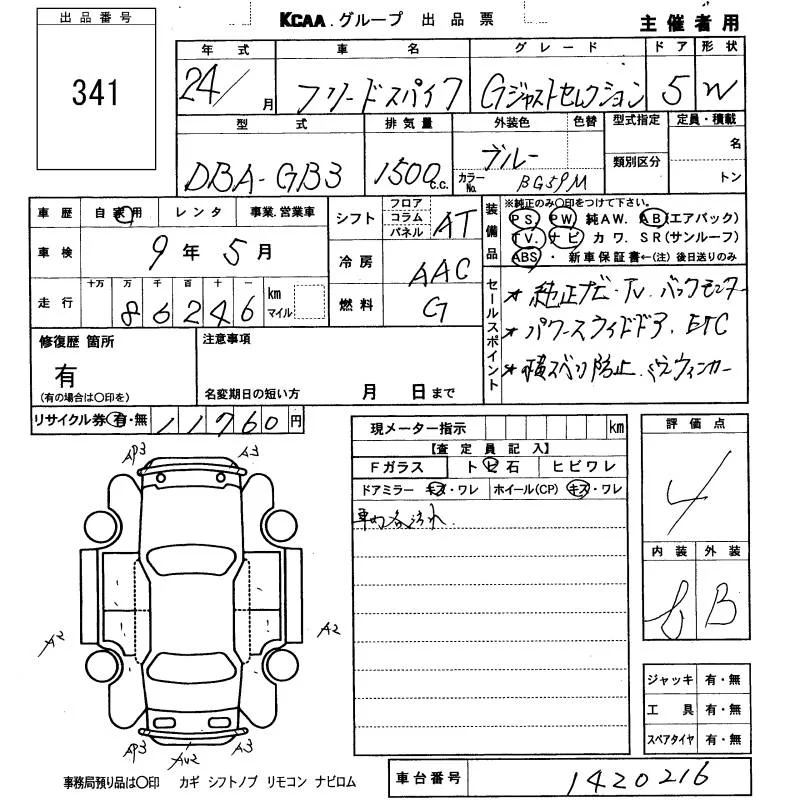 出品番号
341
KCAA.グループ 出品票
主催者用
年式 車名 グレード ドア 形状
24/月 フリードスパイク Gジャストセレクション 5 W
型式 排気量 外装色 色替 型式指定 定員・積載
DBA-GB3 1500c.c. ブルー 名
カラーNo. BG59M 類別区分 トン
車歴 自家用 レンタ 事業.営業車
車検 9年5月
走行 十万 万 千 百 十 一
86246 km マイル
シフト フロア コラム パネル AT
冷房 AAC
燃料 G
装備品
※純正のみ〇印をつけて下さい。
PS PW 純AW. AB(エアバック)
TV. ナビ カワ. SR(サンルーフ)
ABS・新車保証書←(注)後日送りのみ
セールスポイント
* 純正ナビ・TV. バックモニター
* パワースライドドア. ETC
* 横スベリ防止. ミラウィンカー
修復歴 箇所
有
(有の場合は〇印を)
注意事項
名変期日の短い方 月 日まで
リサイクル券 有・無 11760円
現メーター指示 km
【査定員記入】
Fガラス トビ石 ヒビワレ
ドアミラー キズ・ワレ ホイール(CP) キズ・ワレ
評価点
4
内装 外装
B
AP3 A3
A2 A2
AP3 AU2 A3
ジャッキ 有・無
工具 有・無
スペアタイヤ 有・無
事務局預り品は〇印 カギ シフトノブ リモコン ナビロム
車台番号 1420216